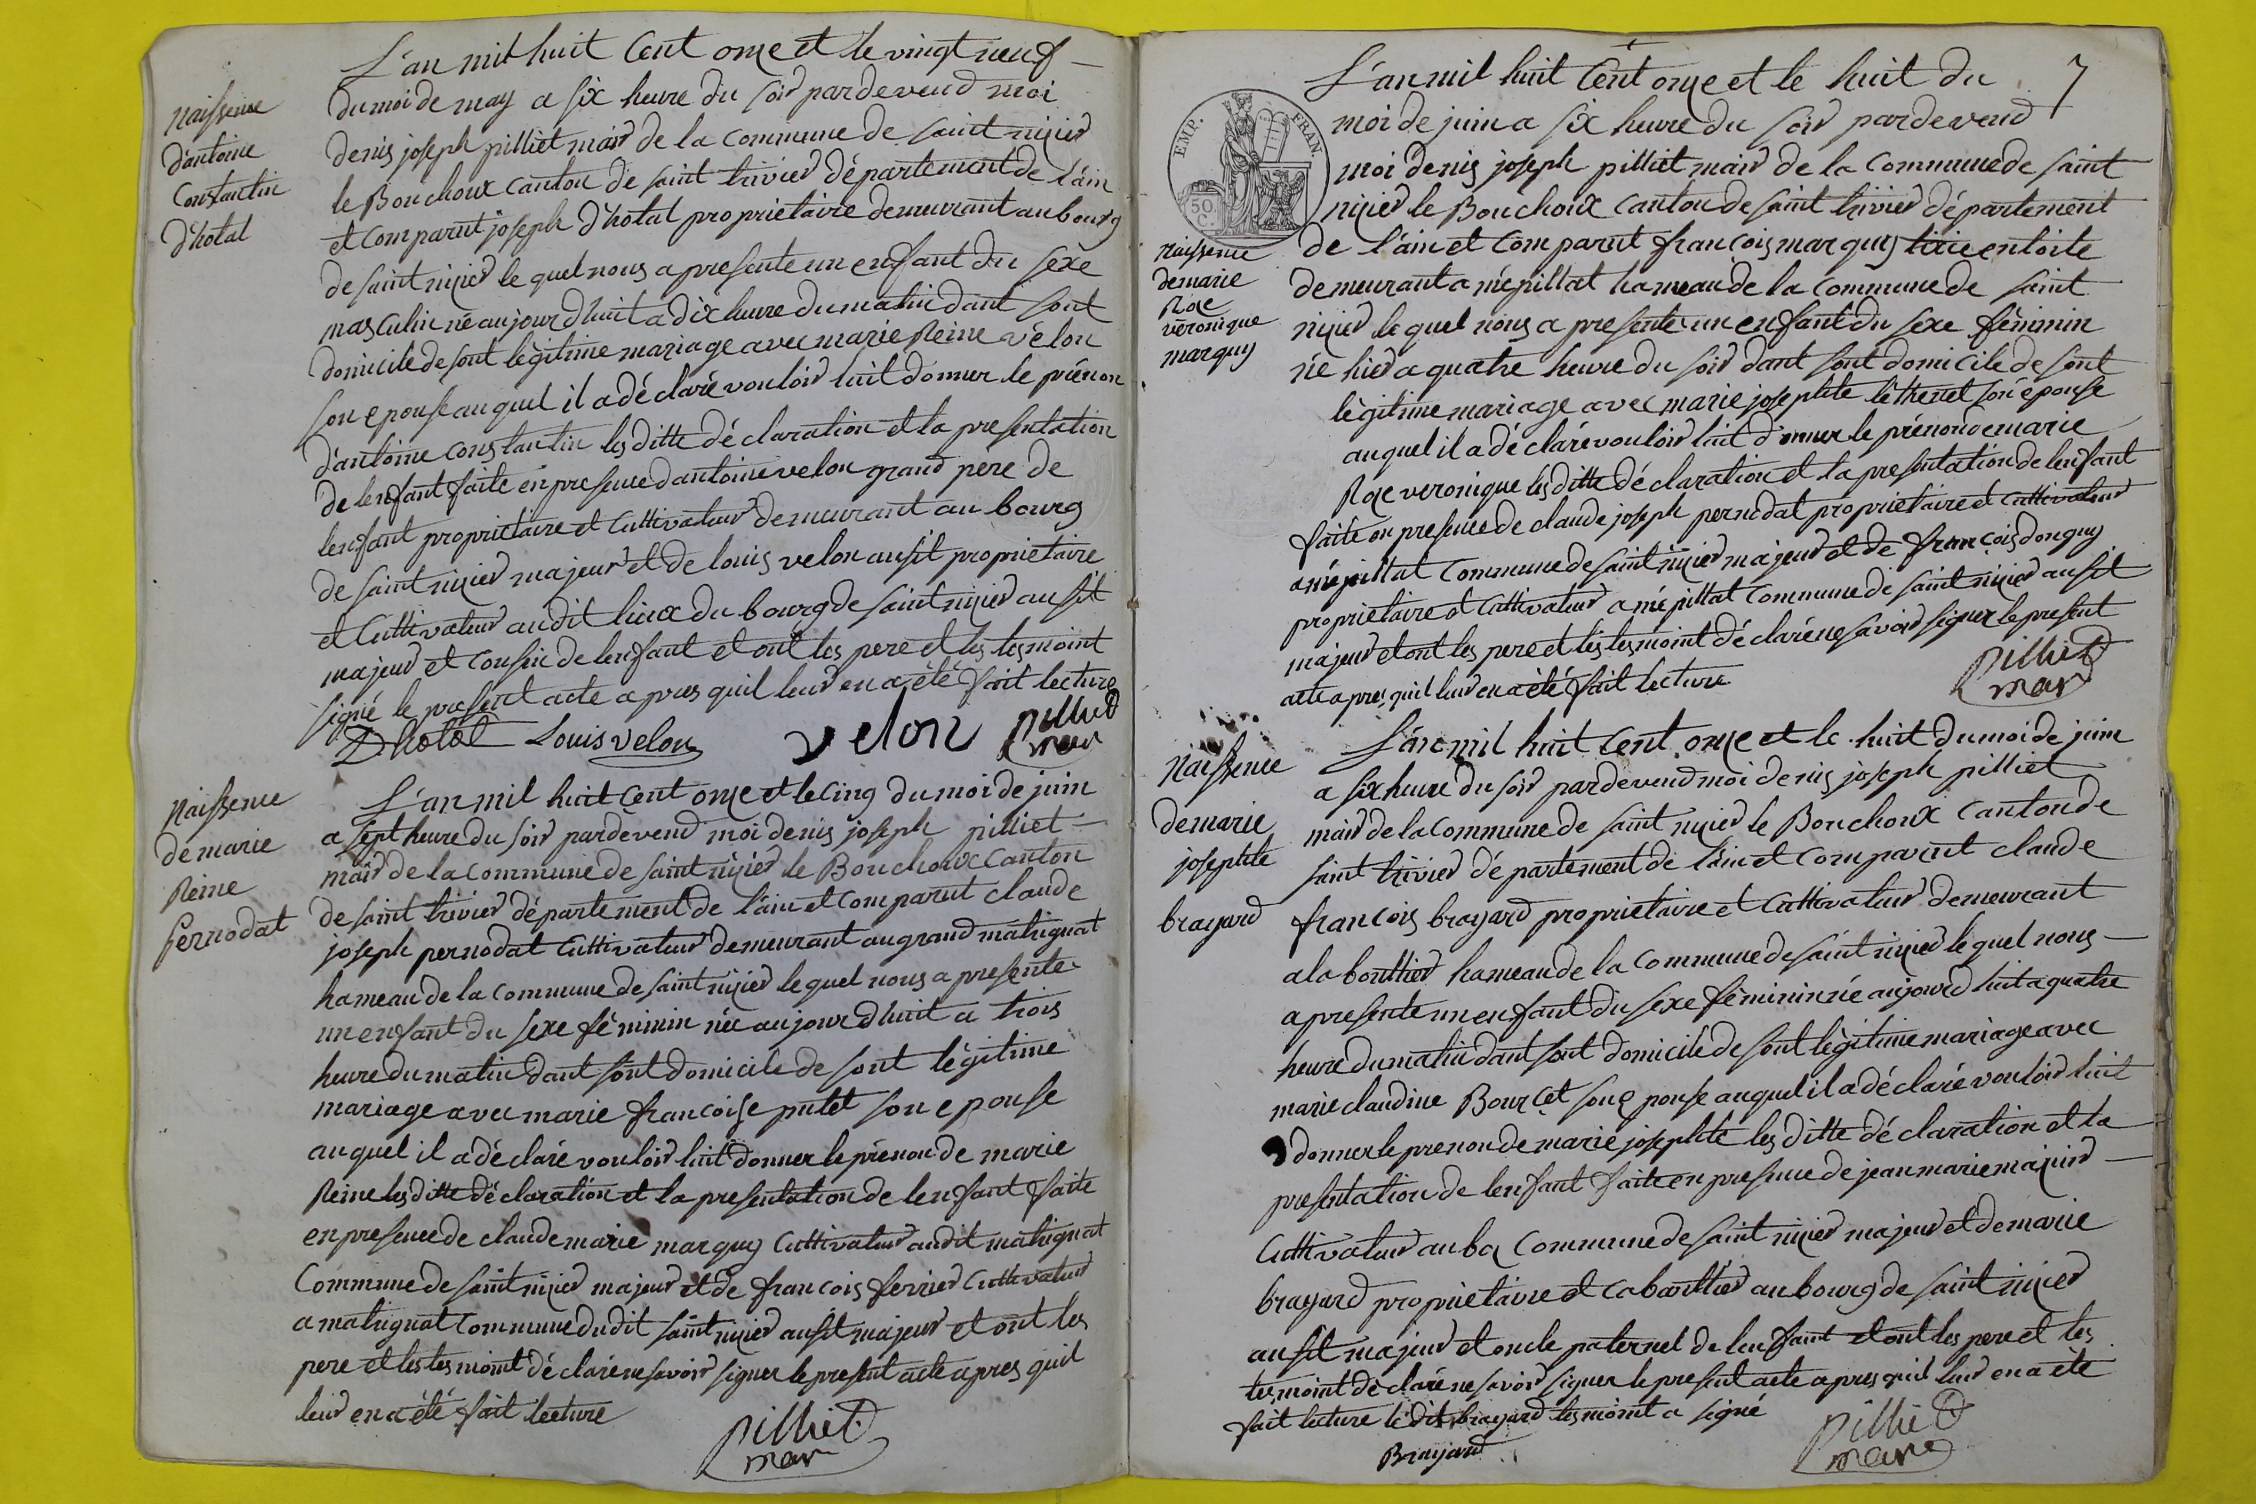 L'an mil huit Cent onze et le vingt neuf
du moi de may a six heure du soir pardevend moi
denis joseph pilliet mair de la commune de saint nizier
le Bouchoux canton de saint trivier département de l'ain
et comparut joseph d'hotal proprietaire demeurant au bourg
de saint nizier le quel nous a presente un enfant du sexe
masculin né aujourdhuit a dix heure du matin dant sont
domicile de sont légitime mariage avec marie Reine vélon
son epouse auquel il a déclaré vouloir luit donner le prénon
d'antoine constantin les ditte déclaration et la presentation
de lenfant faite en presence dantoine velon grand pére de
lenfant proprietaire et Cultivateur demeurant au bourg
de saint nizier majeur et de louis velon ausit proprietaire
et Cultivateur audit lieux du bourg de saint nizier ausit
majeur et cousin de lenfant et ont les pere et les tesmoint
signé le present acte apres quil leur en a été fait lecture
Dhotal Louis velon velon pilliet
mair
Naissence
d'antoine
Constantin
d'hotal
L'an mil huit Cent onze et le Cinq du moi de juin
a sept heure du soir pardevend moi denis joseph pilliet
mair de la commune de saint nizier le Bouchoux Canton
de saint trivier département de l'ain et comparut claude
joseph pernodat Cultivateur demeurant au grand matrignat
hameau de la commune de saint nizier le quel nous a presente
un enfant du sexe féminin née aujourdhuit a trois
heure du matin dant sont domicile de sont légitime
mariage avec marie francoise putet son epouse
auquel il a déclaré vouloir luit donner le prénon de marie
Reine les ditte déclaration et la presentation de lenfant faite
en presence de claude marie marquy Cultivateur audit matrignat
Commune de saint nizier majeur et de francois ferrier Cultivateur
a matrignat commune dudit saint nizier ausit majeur et ont les
pere et les tesmoint déclaré ne savoir signer le present acte apres quil
leur en a été fait lecture
pilliet
mair
Naissence
de marie
Reine
Pernodat
7
L'an mil huit Cent onze et le huit du
moi de juin a six heure du soir pardevend
moi denis joseph pilliet mair de la commune de saint
nizier le Bouchoux canton de saint trivier département
de l'ain et comparut francois marquy tixie entoite
demeurant a mépillat hameau de la commune de saint
nizier le quel nous a presente un enfant du sexe féminin
né hier a quatre heure du soir dant sont domicile de sont
légitime mariage avec marie josephte léthenet son épouse
auquel il a déclaré vouloir luit donner le prénon de marie
Roze veronique les ditte déclaration et la presentation de lenfant
faite en presence de claude joseph pernodat proprietaire et cultivateur
a mépillat commune de saint nizier majeur et de francois donguy
proprietaire et Cultivateur a mépillat commune de saint nizier ausit
majeur et ont les pere et les tesmoint déclaré ne savoir signer le present
acte apres quil leur en a été fait lecture
pilliet
mair
EMP. FRAN.
50
C.
Naissence
de marie
Roze
véronique
marquy
L'an mil huit Cent onze et le huit du moi de juin
a six heure du soir pardevend moi denis joseph pilliet
mair de la commune de saint nizier le Bouchoux Canton de
saint trivier département de l'ain et comparut claude
francois brayard proprietaire et Cultivateur demeurant
a la bouttier hameau de la commune de saint nizier le quel nous
a presente un enfant du sexe féminin née aujourdhuit a quatre
heure du matin dant sont domicile de sont légitime mariage avec
marie claudine Bourcet son epouse auquel il a déclaré vouloir luit
donner le prenon de marie josephte les ditte déclaration et la
presentation de lenfant faite en presence de jean marie mazuir
Cultivateur au boz Commune de saint nizier majeur et de marie
brayard proprietaire et cabarttier au bourg de saint nizier
ausit majeur et oncle paternel de lenfant et ont les pere et les
tesmoint déclaré ne savoir signer le present acte apres quil leur en a été
fait lecture le dit brayard tesmoint a signé
Brayard
pilliet
mair
Naissence
de marie
josephte
brayard